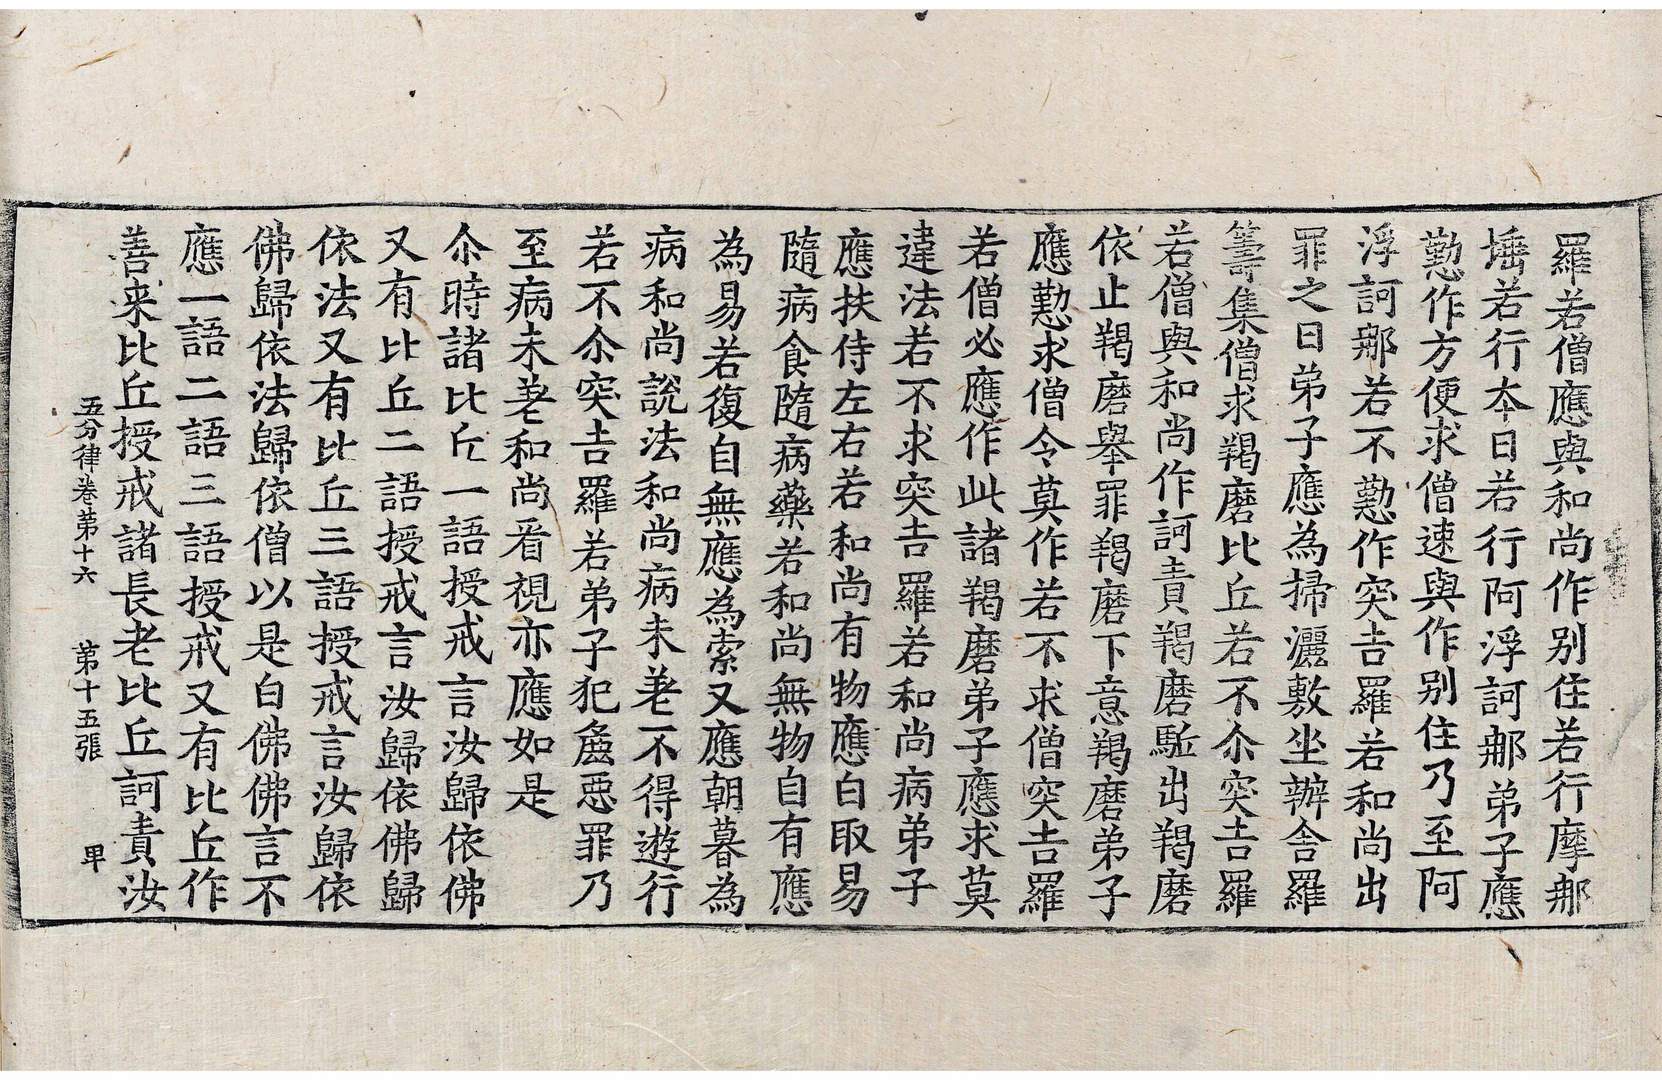 羅若僧應與和尚作别住若行摩𨚗
埵若行夲日若行阿浮訶𨚗弟子應
懃作方便求僧速與作别住乃至阿
浮訶𨚗若不懃作突吉羅若和尚出
罪之日弟子應為掃灑敷坐辦舎羅
籌集僧求羯磨比丘若不尒突吉羅
若僧與和尚作訶責羯磨駈出羯磨
依止羯磨舉罪羯磨下意羯磨弟子
應懃求僧令莫作若不求僧突吉羅
若僧必應作此諸羯磨弟子應求莫
違法若不求突吉羅若和尚病弟子
應扶侍左右若和尚有物應白取易
隨病食隨病藥若和尚無物自有應
為易若復自無應為索又應朝暮為
病和尚說法和尚病未差不得遊行
若不尒突吉羅若弟子犯麁惡罪乃
至病未差和尚看視亦應如是
尒時諸比丘一語授戒言汝歸依佛
又有比丘二語授戒言汝歸依佛歸
依法又有比丘三語授戒言汝歸依
佛歸依法歸依僧以是白佛佛言不
應一語二語三語授戒又有比丘作
善来比丘授戒諸長老比丘訶責汝
五分律卷第十六 第十五張 甲